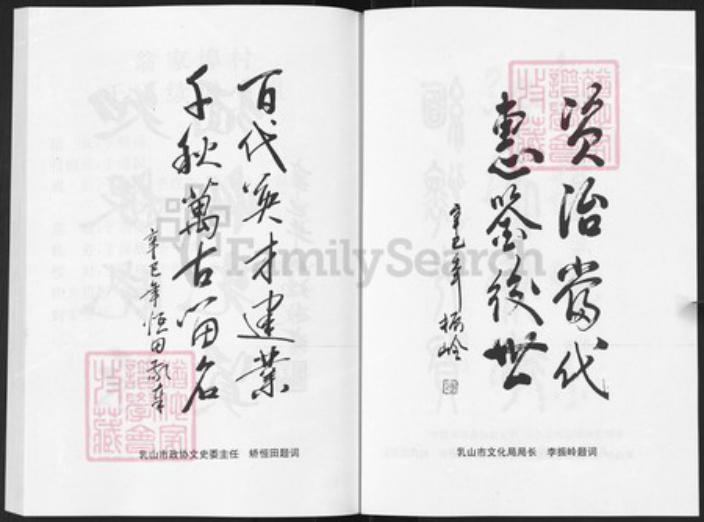 资治當代
惠鉴後世
辛巳年 振岭
乳山市文化局局长 李振岭题词
百代英才建業
千秋萬古留名
辛巳年恒田敬筆
乳山市政协文史委主任 矫恒田题词
FamilySearch